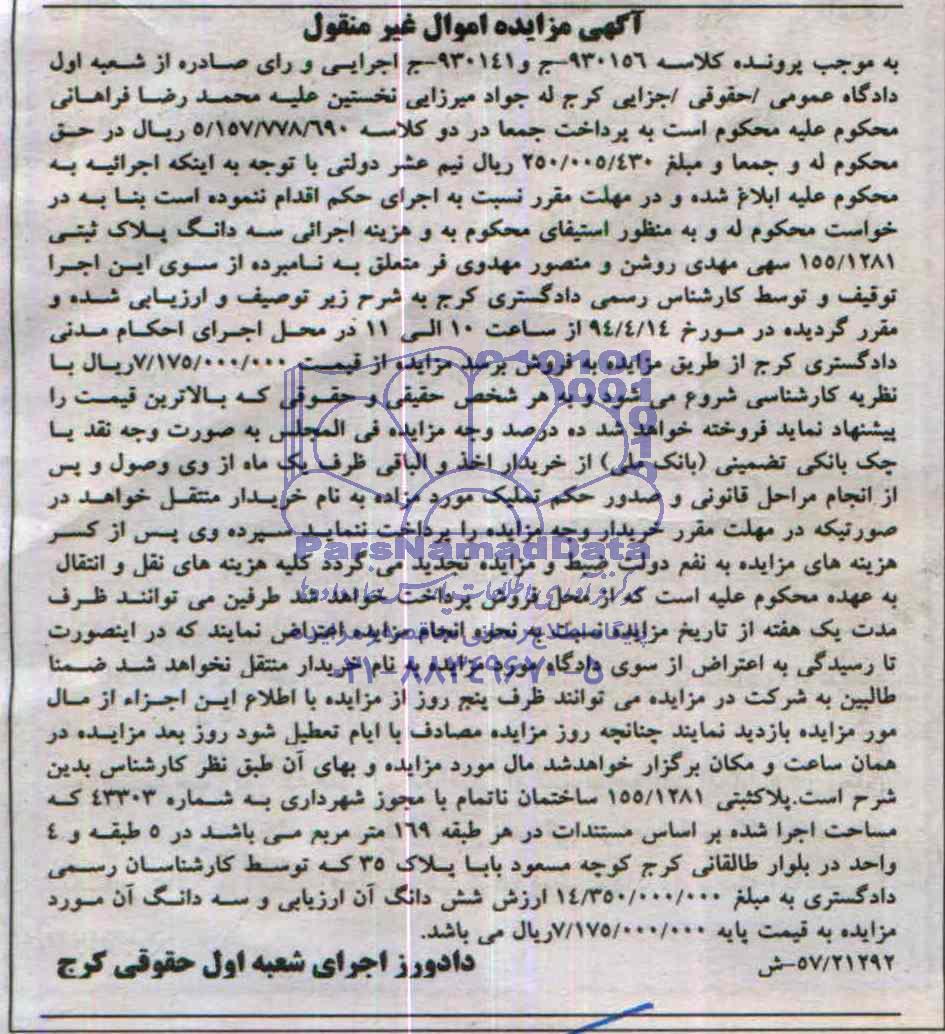 آگهی مزایده اموال غیر منقول
به موجب پرونده کلاسه ۹۳۰۱۵۶-ج و۹۳۰۱٤۱-ج اجرایی و رای صادره از شعبه اول
دادگاه عمومی /حقوقی /جزایی کرج له جواد میرزایی نخستین علیه محمد رضا فراهانی
محکوم علیه محکوم است به پرداخت جمعا در دو کلاسه ۵/۱۵۷/۷۷۸/٦۹۰ ریال در حق
محکوم له و جمعا و مبلغ ۲۵۰/۰۰۵/٤۳۰ ریال نیم عشر دولتی با توجه به اینکه اجرائیه به
محکوم علیه ابلاغ شده و در مهلت مقرر نسبت به اجرای حکم اقدام ننموده است بنا به در
خواست محکوم له و به منظور استیفای محکوم به و هزینه اجرائی سه دانگ پلاک ثبتی
۱۵۵/۱۲۸۱ سهی مهدی روشن و منصور مهدوی فر متعلق به نامبرده از سوی این اجرا
توقیف و توسط کارشناس رسمی دادگستری کرج به شرح زیر توصیف و ارزیابی شده و
مقرر گردیده در مورخ ۹٤/٤/۱٤ از ساعت ۱۰ الی ۱۱ در محل اجرای احکام مدنی
دادگستری کرج از طریق مزایده به فروش برسد مزایده از قیمت ۷/۱۷۵/۰۰۰/۰۰۰ریال با
نظریه کارشناسی شروع می شود و به هر شخص حقیقی و حقوقی که بالاترین قیمت را
پیشنهاد نماید فروخته خواهد شد ده درصد وجه مزایده فی المجلس به صورت وجه نقد یا
چک بانکی تضمینی (بانک ملی) از خریدار اخذ و الباقی ظرف یک ماه از وی وصول و پس
از انجام مراحل قانونی و صدور حکم تملیک مورد مزاده به نام خریدار منتقل خواهد در
صورتیکه در مهلت مقرر خریدار وجه مزایده را پرداخت ننماید سپرده وی پس از کسر
ParsNamadData
هزینه های مزایده به نفع دولت ضبط و مزایده تجدید می گردد کلیه هزینه های نقل و انتقال
به عهده محکوم علیه است که از محل فروش پرداخت خواهد شد طرفین می توانند ظرف
مدت یک هفته از تاریخ مزایده نسبت به نحوه انجام مزایده اعتراض نمایند که در اینصورت
تا رسیدگی به اعتراض از سوی دادگاه مورد مزایده به نام خریدار منتقل نخواهد شد ضمنا
۰۲۱-۸۸۳٤۹٦۷۰-۵
طالبین به شرکت در مزایده می توانند ظرف پنج روز از مزایده با اطلاع این اجزاء از مال
مور مزایده بازدید نمایند چنانچه روز مزایده مصادف با ایام تعطیل شود روز بعد مزایده در
همان ساعت و مکان برگزار خواهدشد مال مورد مزایده و بهای آن طبق نظر کارشناس بدین
شرح است.پلاکثبتی ۱۵۵/۱۲۸۱ ساختمان ناتمام با مجوز شهرداری به شماره ٤۳۳۰۳ که
مساحت اجرا شده بر اساس مستندات در هر طبقه ۱٦۹ متر مربع می باشد در ۵ طبقه و ٤
واحد در بلوار طالقانی کرج کوچه مسعود بابا پلاک ۳۵ که توسط کارشناسان رسمی
دادگستری به مبلغ ۱٤/۳۵۰/۰۰۰/۰۰۰ ارزش شش دانگ آن ارزیابی و سه دانگ آن مورد
مزایده به قیمت پایه ۷/۱۷۵/۰۰۰/۰۰۰ریال می باشد.
۵۷/۲۱۲۹۲-ش
دادورز اجرای شعبه اول حقوقی کرج